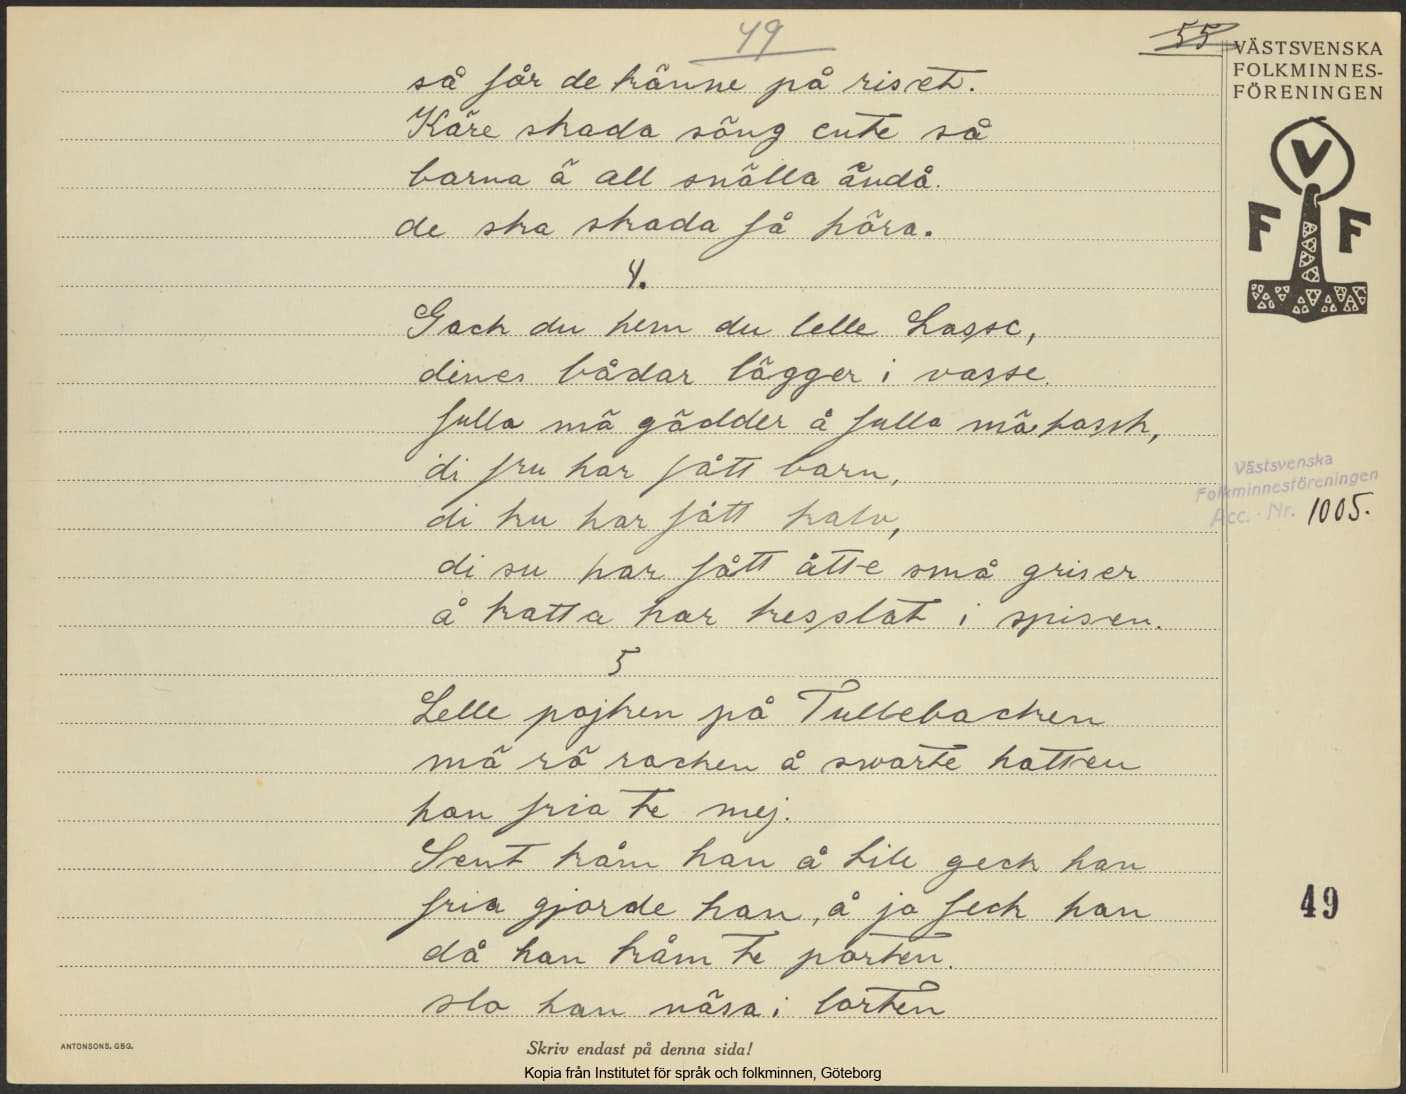 49
55
VÄSTSVENSKA
FOLKMINNES-
FÖRENINGEN
V
F F
så får de känne på riset.
Käre skada söng ente så
barna ä all snälla ändå.
de ska skada få höra.
4.
Gack du hem du lelle Lasse,
dines bådar lägger i vasse.
fulla mä gädder å fulla mä
di fru har fått barn,
di ku har fått kalv,
di su har fått åtte små griser
å katta har kesslat i spisen.
Västsvenska
Folkminnesföreningen
Acc. - Nr. 1005.
5
Lelle pojken på Tullebacken
mä rö rocken å swarte hatten
han fria te mej.
Sent kåm han å lile geck han
fria gjorde han, å ja feck han
då han kåm te porten.
slo han näsa i lorten
49
ANTONSONS, GBG.
Skriv endast på denna sida!
Kopia från Institutet för språk och folkminnen, Göteborg